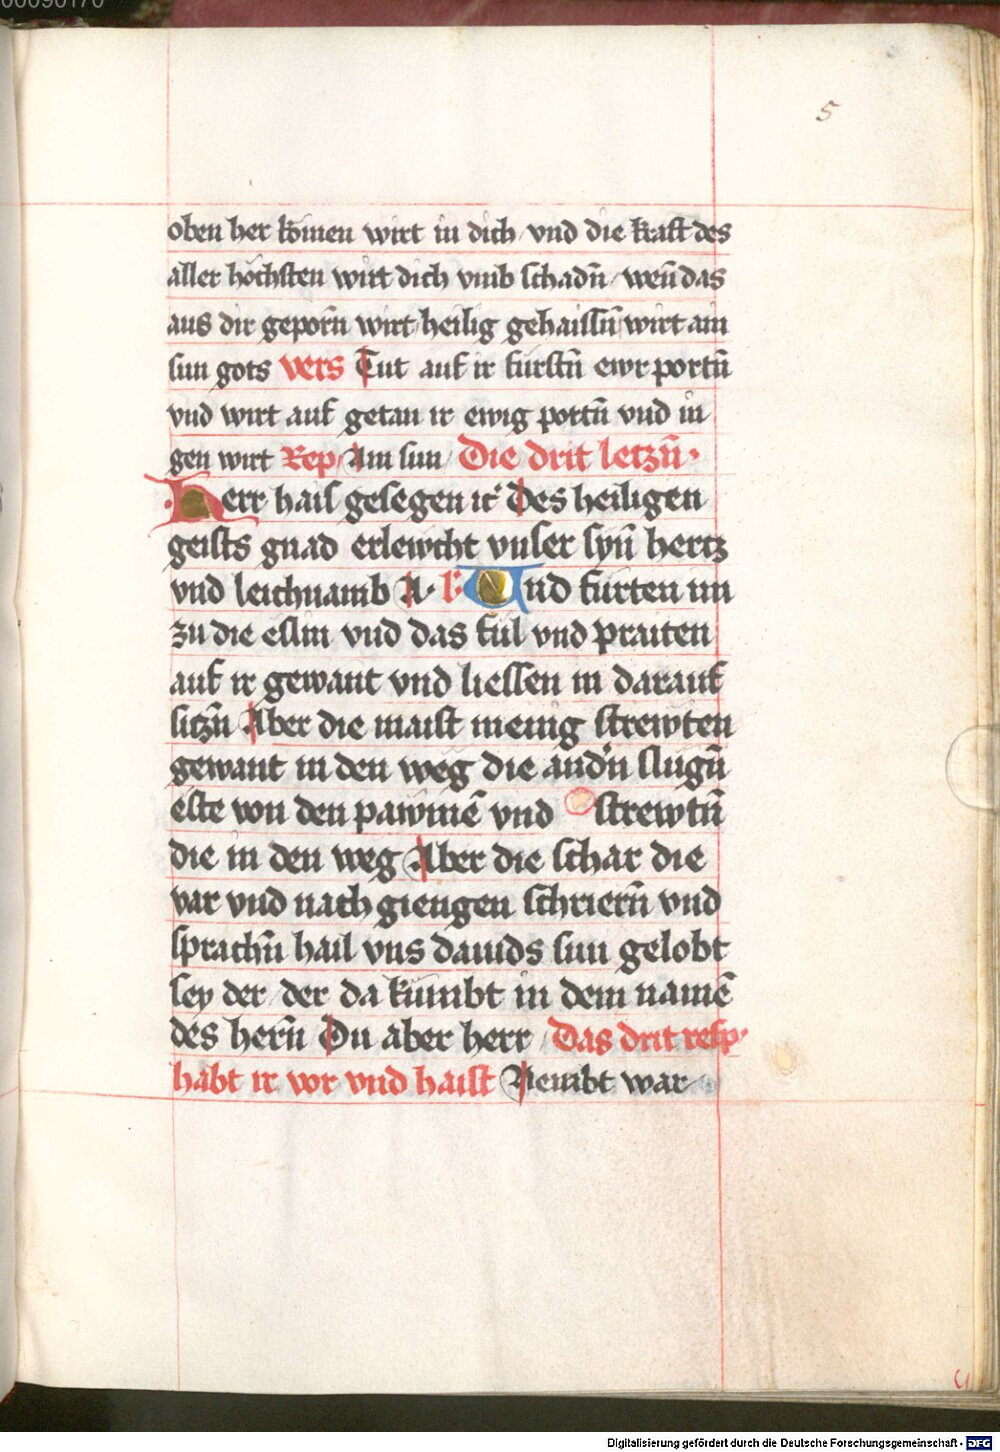 00090170
5
oben her kömen wirt in dich vnd die kraft des
aller höchsten wirt dich vmb schadn̄ wen̄ das
aus dir geporn̄ wirt heilig gehaissn̄ wirt ain
sun gots vers Tut auf ir fürstn̄ ewr portn̄
vnd wirt auf getan ir ewig portn̄ vnd in
gen wirt Rep Am sun Die drit letzn̄
Herr hais gesegen ic̄ Des heiligen
geists gnad erlewcht vnser syn̄ hertz
vnd leichnamb A· l: Und fürten im
zu die eslin vnd das fül vnd praiten
auf ir gewant vnd liessen in darauf
sitzn̄ Aber die maist menig strewten
gewant in den weg die andn̄ slugn̄
este von den pawmē vnd strewtn̄
die in den weg Aber die schar die
var vnd nach giengen schriern̄ vnd
sprachn̄ hail vns dauids sun gelobt
sey der der da kumbt in dem namē
des hern̄ Du aber herr Das drit resp·
habt ir vor vnd haist Nembt war
Digitalisierung gefördert durch die Deutsche Forschungsgemeinschaft - DFG